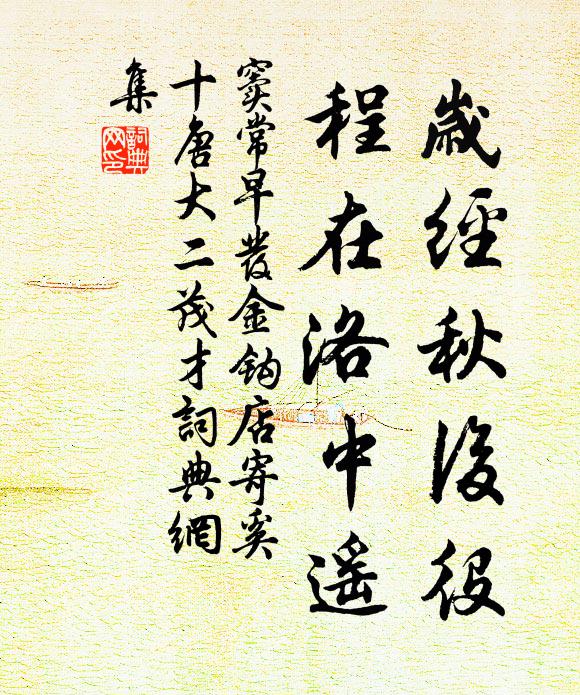 歲經秋後役
程在洛中遙
竇常早發金鈎店寄奚
十唐大二茂才詞典網
集
詞典
网印